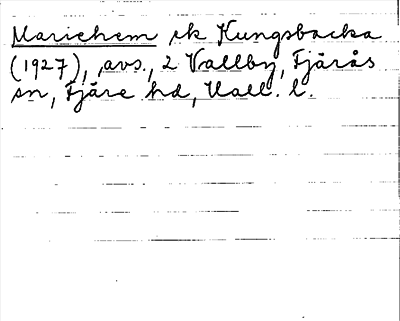 Mariehem sk Kungsbacka
(1927), avs., 2 Vallby, Fjärås
sn, Fjäre hd, Hall. l.